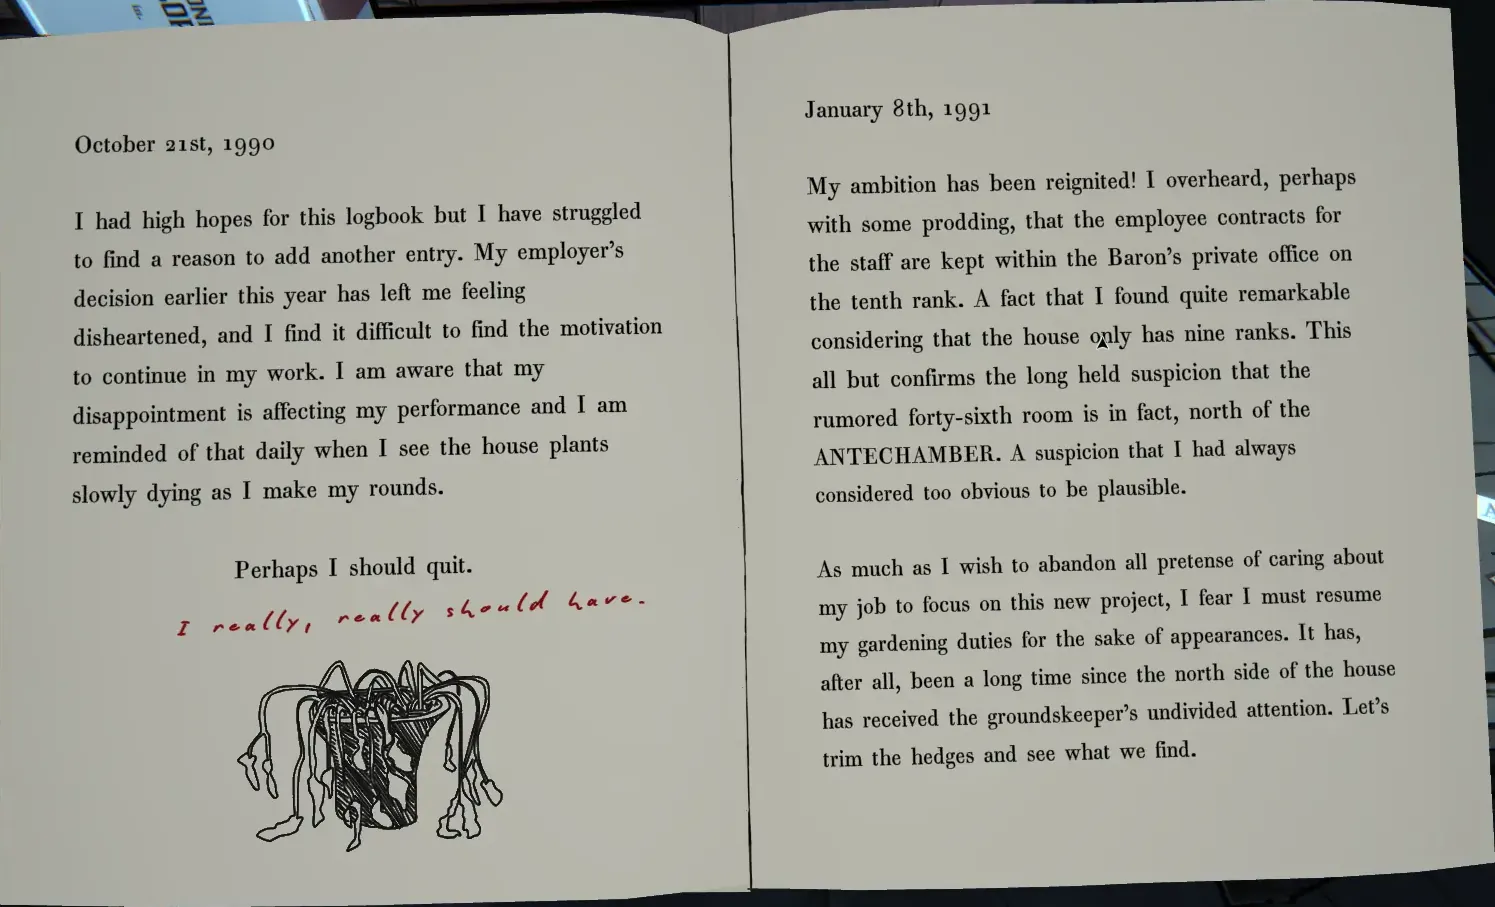 October 21st, 1990
I had high hopes for this logbook but I have struggled
to find a reason to add another entry. My employer's
decision earlier this year has left me feeling
disheartened, and I find it difficult to find the motivation
to continue in my work. I am aware that my
disappointment is affecting my performance and I am
reminded of that daily when I see the house plants
slowly dying as I make my rounds.
Perhaps I should quit.
I really, really should have.
January 8th, 1991
My ambition has been reignited! I overheard, perhaps
with some prodding, that the employee contracts for
the staff are kept within the Baron's private office on
the tenth rank. A fact that I found quite remarkable
considering that the house only has nine ranks. This
all but confirms the long held suspicion that the
rumored forty-sixth room is in fact, north of the
ANTECHAMBER. A suspicion that I had always
considered too obvious to be plausible.
As much as I wish to abandon all pretense of caring about
my job to focus on this new project, I fear I must resume
my gardening duties for the sake of appearances. It has,
after all, been a long time since the north side of the house
has received the groundskeeper's undivided attention. Let's
trim the hedges and see what we find.